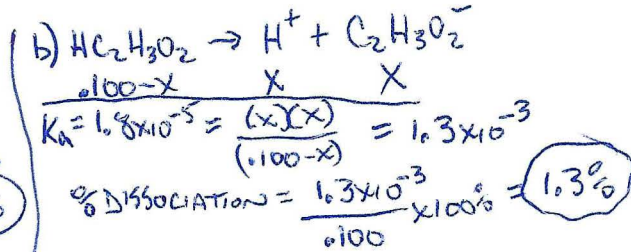 b) HC₂H₃O₂ → H⁺ + C₂H₃O₂⁻
.100-X X X
Ka = 1.8x10⁻⁵ = (x)(x) / (.100-x) = 1.3x10⁻³
% DISSOCIATION = 1.3x10⁻³ / .100 x100% = 1.3%